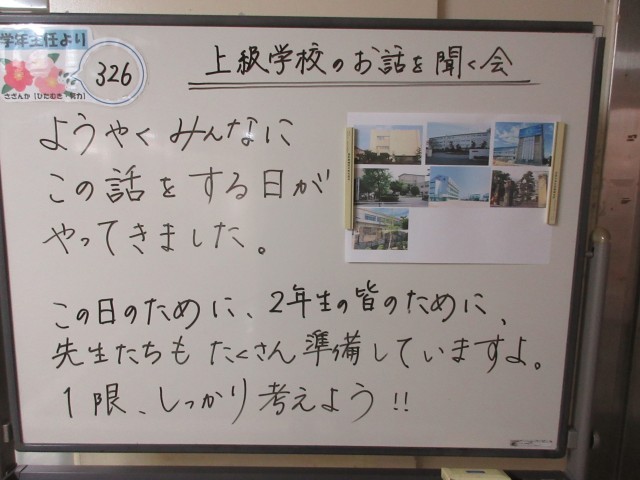 学年主任より
326
さざんか「ひたむき・努力」
上級学校のお話を聞く会
ようやくみんなに
この話をする日が
やってきました。
この日のために、2年生の皆のために、
先生たちもたくさん準備していますよ。
1限、しっかり考えよう!!